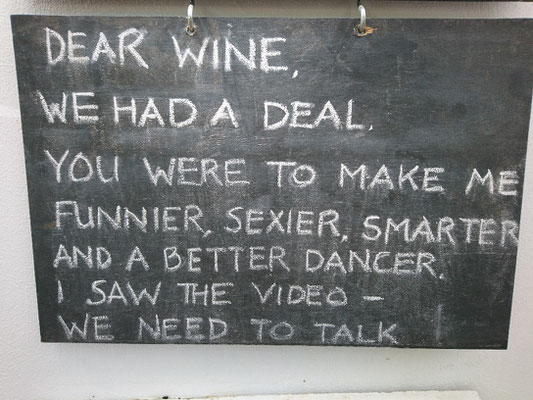 DEAR WINE,
WE HAD A DEAL.
YOU WERE TO MAKE ME
FUNNIER, SEXIER, SMARTER
AND A BETTER DANCER.
I SAW THE VIDEO –
WE NEED TO TALK